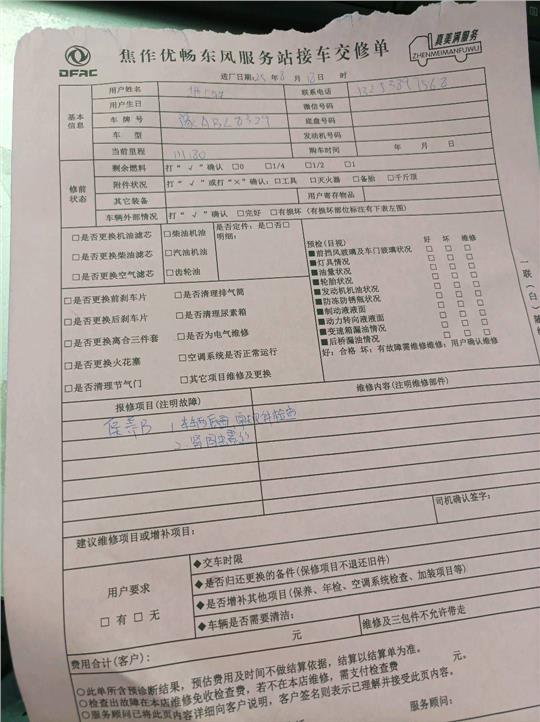 DFAC
焦作优畅东风服务站接车交修单
真美满服务
ZHENMEIMANFUWU
送厂日期:25 年 8 月 日 时
基本信息
用户姓名 联系电话
用户生日 微信号码
车 牌 号 底盘号码
车 型 发动机号码
当前里程 购车时间 年 月 日
修前状态
剩余燃料 打“√”确认 □0 □1/4 □1/2 □1
附件状况 打“√”或打“×”确认:□工具 □灭火器 □备胎 □千斤顶
其它装备 用户寄存物品
车辆外部情况 打“√”确认 □完好 □有损坏(有损坏部位标注有下表左图)
□是否更换机油滤芯 □柴油机油 是否定件:是□否□
□是否更换柴油滤芯 □汽油机油 明细:
□是否更换空气滤芯 □齿轮油
□是否更换前刹车片 □是否清理排气筒
□是否更换后刹车片 □是否清理尿素箱
□是否更换离合三件套 □是否为电气维修
□是否更换火花塞 □空调系统是否正常运行
□是否清理节气门 □其它项目维修及更换
预检(目视) 好 坏 维修
■前挡风玻璃及车门玻璃状况 □ □ □
■灯具情况 □ □ □
■油量状况 □ □ □
■轮胎状况 □ □ □
■发动机机油状况 □ □ □
■防冻防锈瓶状况 □ □ □
■制动液液面 □ □ □
■动力转向液液面 □ □ □
■变速箱漏油情况 □ □ □
■后桥漏油情况 □ □ □
好:合格 坏:有故障需维修维修:用户确认维修
一联(白)
报修项目(注明故障) 维修内容(注明维修部件)
保养B 1.车辆 检查
2.
司机确认签字:
建议维修项目或增补项目:
用户要求
□ 有 □ 无
◆交车时限
◆是否归还更换的备件(保修项目不退还旧件)
◆是否增补其他项目(保养、年检、空调系统检查、加装项目等)
◆车辆是否需要清洁:
元 维修及三包件不允许带走
费用合计(客户):
○此单所含预诊断结果,预估费用及时间不做结算依据,结算以结算单为准。
○检查出故障在本店维修免收检查费,若不在本店维修,需支付检查费 元。
○服务顾问已将此页内容详细向客户说明,客户签名则表示已理解并接受此页内容。
服务顾问: